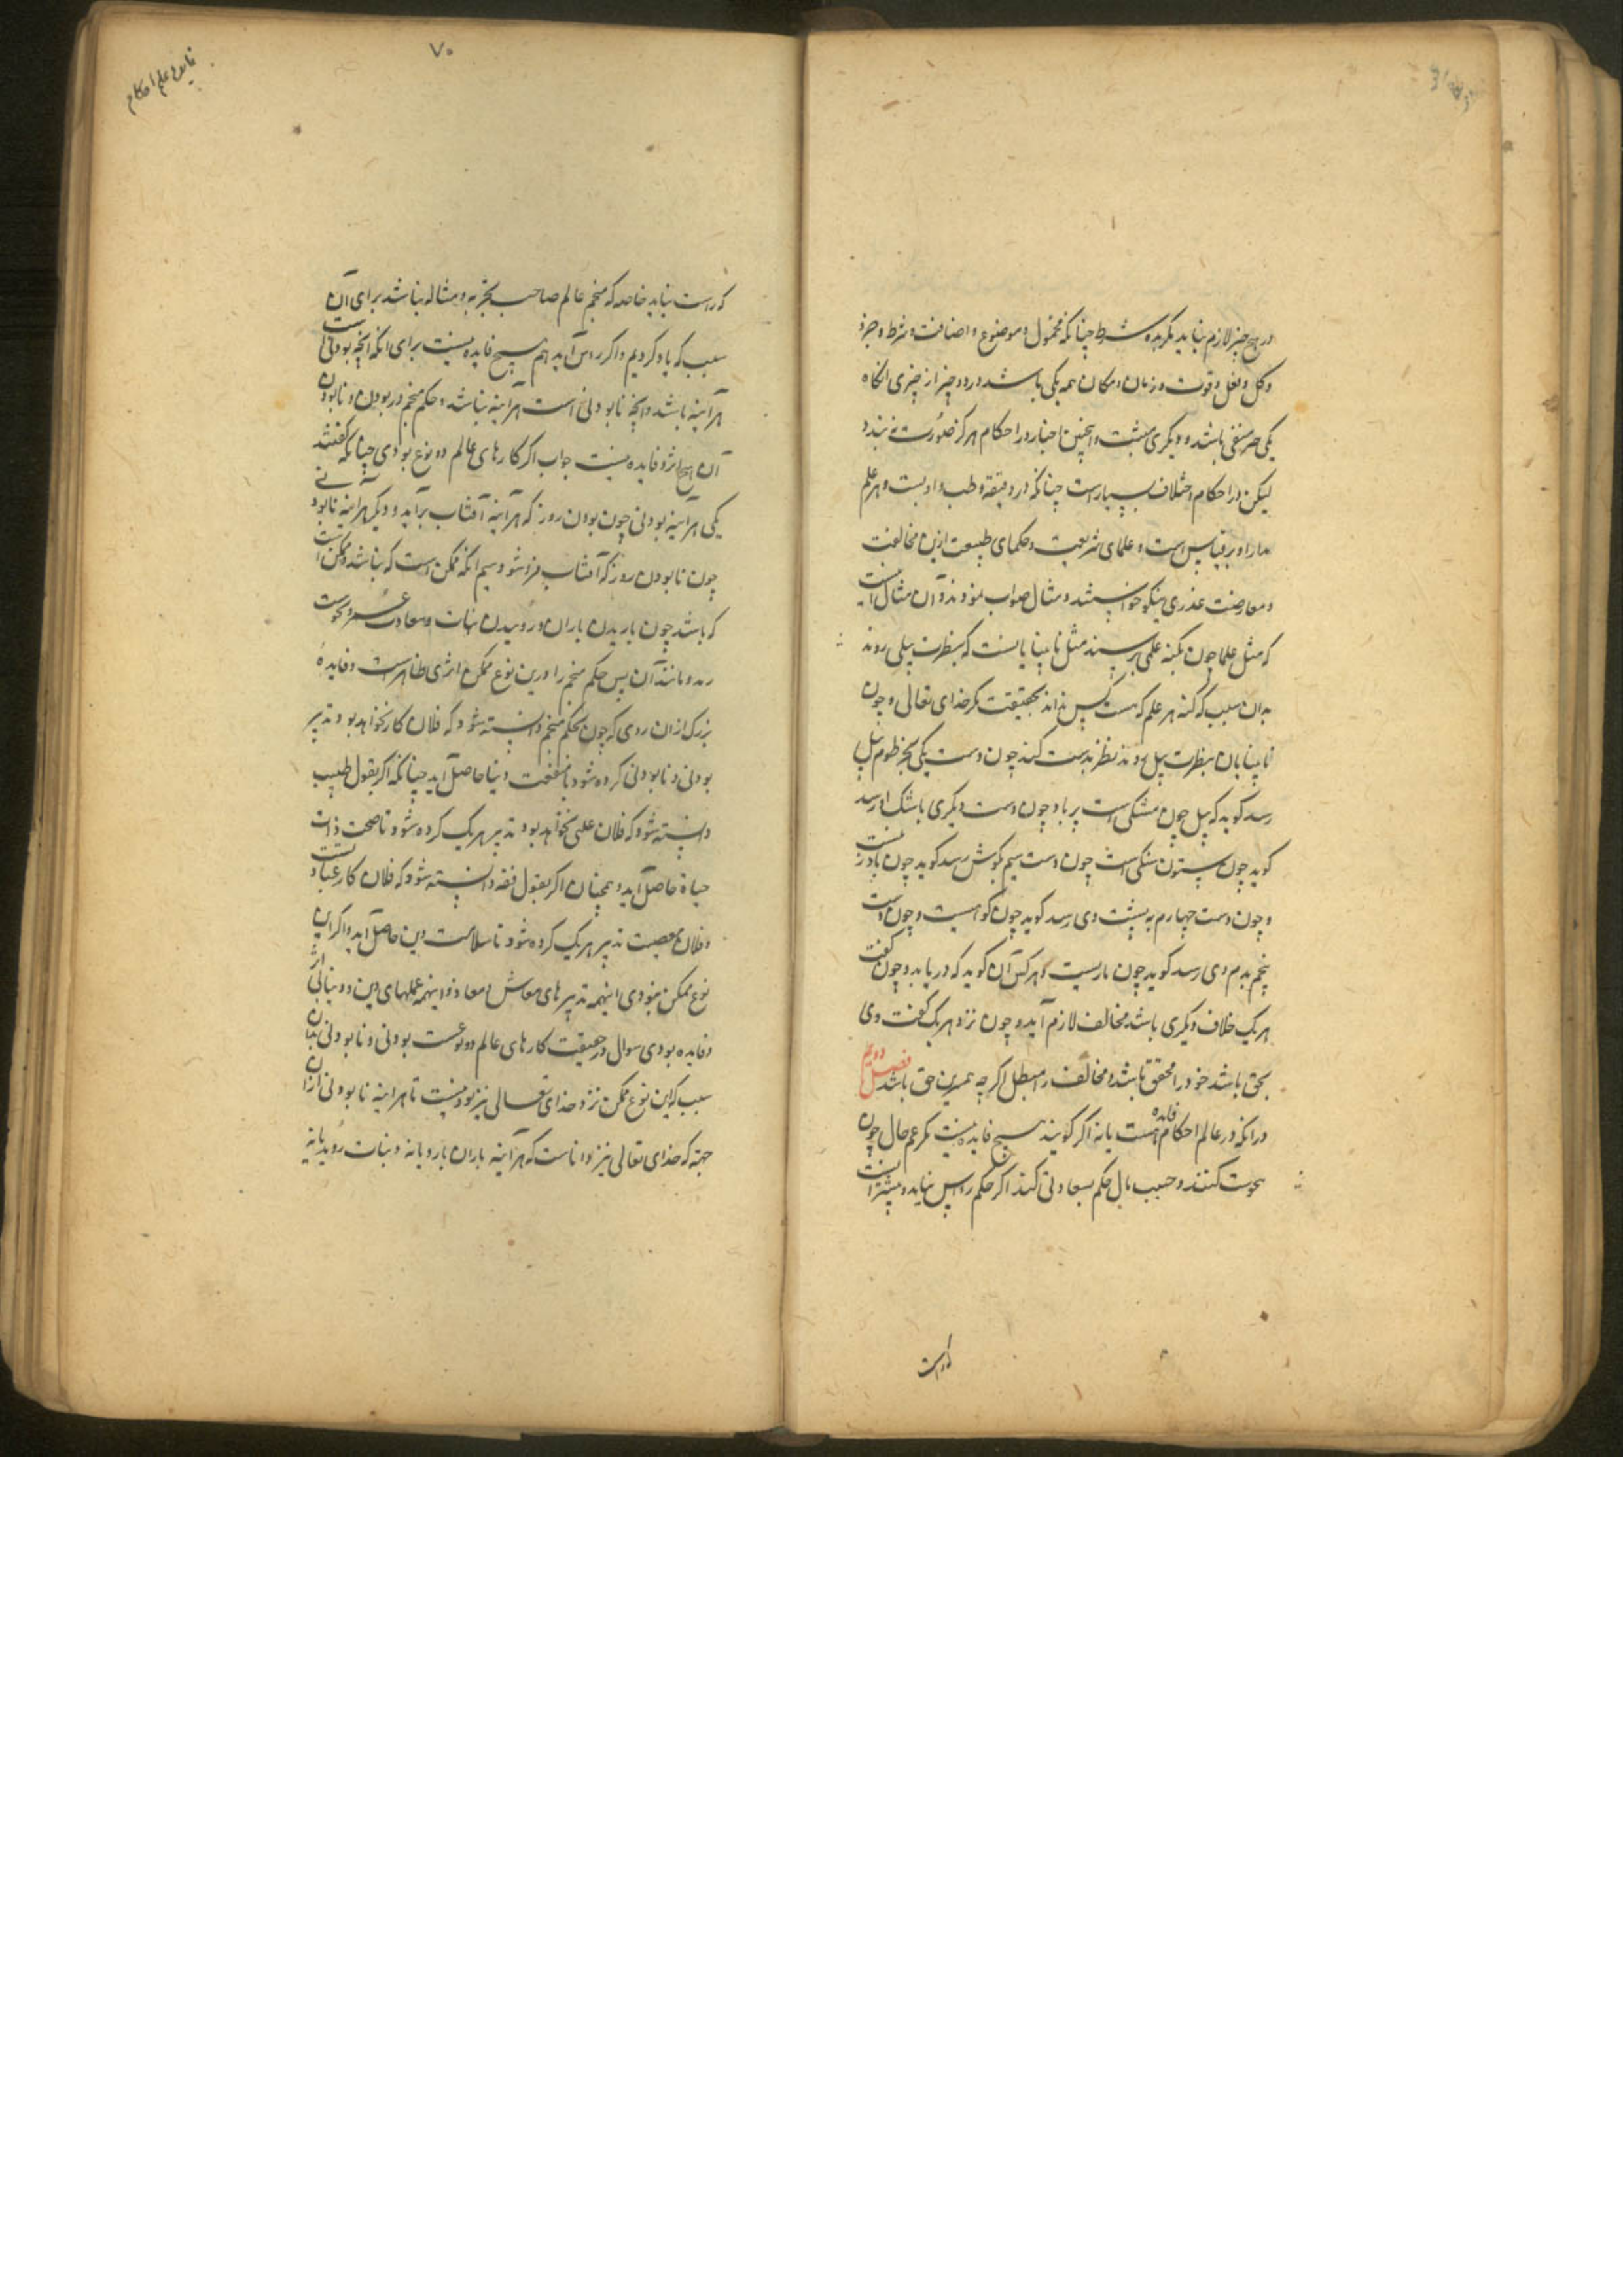 در هیچ چیز لازم نیاید مکر بده شرط چنانکه محمول و موضوع و اضافت و شرط و جزؤ
و کل و فعل و قوت و زمان و مکان همه یکی باشد در دو چیز از چیزی انکاه
یکی منفی باشد و دیکری مثبت و اینچنین اخبار در احکام هرکز صورت نه بندد
لیکن در احکام اختلاف بسیارست چنانکه در دقیقه و طب و ادبست و هر علم
مدار او بر قیاس است و علمای شریعت و حکمای طبیعت ازین مخالفت
و معارضت عذری نیکو خواستند و مثال صواب نمودند و آن مثال اینست
که مثل علما چون بکنه علمی برسند مثل نابینایانست که بنظرت پیلی روند
بدان سبب که کنه هر علم که هست کس نداند بحقیقت مکر خدای تعالی و چون
نابینایان بنظرت پیل روند نظر بدست کنند چون دست یکی بخرطوم پیل
رسد کوید که پیل چون مشکی است پر باد چون دست دیکری باشک او رسد
کوید چون ستون سنکی است چون دست سیم بکوش رسد کوید چون بادزنست
و چون دست چهارم به پشت وی رسد کوید چون کوهیست و چون دست
پنجم بدم وی رسد کوید چون ماریست و هر کس آن کوید که دریابد و چون کفت
هر یک خلاف دیکری باشد مخالف لازم آید و چون نزد هر یک کفت وی
بحق باشد خود را محقق باشد و مخالف را مبطل اکرچه همین حق باشد فصل دویم
در انکه در عالم احکام فایده هست یا نه اکر کویند هیچ فایده نیست مکر غم حال چون
نحوست کنند و حسب مال حکم بسعادتی کنند اکر حکم راس نیاید و بیشتر انست
که راست
فایده علم احکام
۷۰
که راست نیاید خاصه که منجم عالم صاحب تجربه و مثاله نباشد برای آن
سبب که یاد کردیم و اکر راس آید هم هیچ فایده نیست برای انکه انچه بودنی است
هرآینه باشد و انچه نابودنی است هرآینه نباشد و حکم منجم در بودن و نابودن
آن هیچ اثر و فایده نیست جواب اکر کارهای عالم دو نوع بودی چنانکه کفتند
یکی هرآینه بودنی چون بودن روز که هرآینه آفتاب برآید و دیکر هرآینه نابودنی
چون نابودن روز که آفتاب فرو شود سیم انکه ممکن است که نباشد و ممکن است
که باشد چون باریدن باران و روییدن نبات و سعادت و نحوست
و مانند آن پس حکم منجم را درین نوع ممکن اثری ظاهرست و فایدهٔ
بزرک ازان روی که چون بحکم منجم دانسته شود که فلان کار نخواهد بود تدبیر
بودنی و نابودنی کرده شود تا منفعت دنیا حاصل آید چنانکه اکر بقول طبیب
دانسته شود که فلان علتی نخواهد بود تدبیر هر یک کرده شود تا صحت ذات
حیاة حاصل آید و همچنان اکر بقول فقه دانسته شود که فلان کار عبادتست
و فلان معصیت تدبیر هر یک کرده شود تا سلامت دین حاصل آید و اکر این
نوع ممکن نبودی اینهمه تدبیرهای معاش و معاد و اینهمه عملهای دین و دنیا بی اثر
و فایده بودی سوال در حقیقت کارهای عالم دو نوعست بودنی و نابودنی بدان
سبب که این نوع ممکن نزد خدای تعالی نیز نبود نیست تا هرآینه نابودنی ازان
جهة که خدای تعالی نیز داناست که هرآینه باران بارد یا نه و نبات روید یا نه